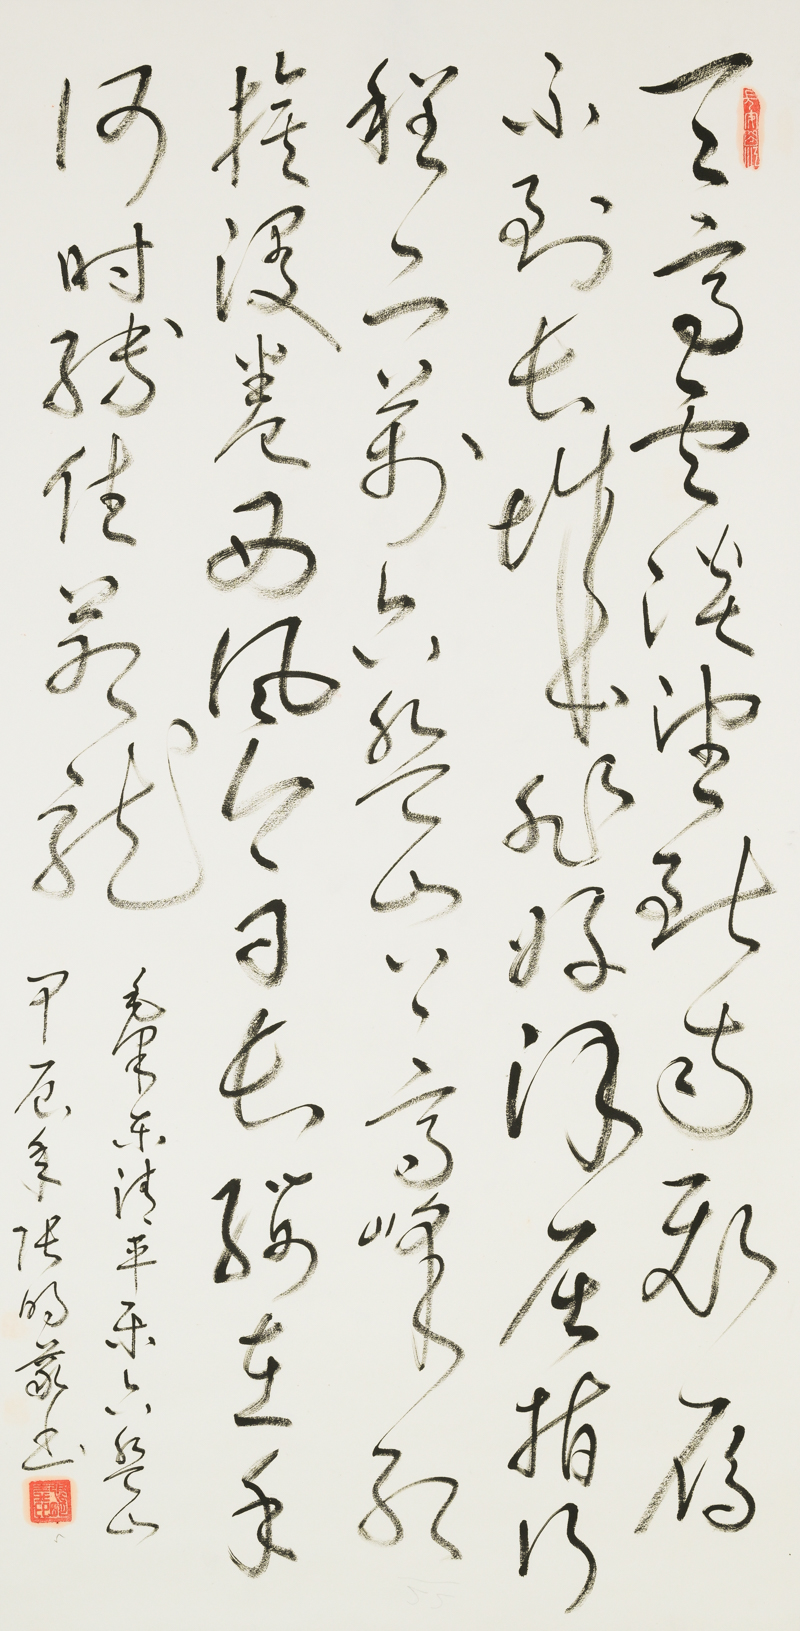 天高雲淡望断南飞雁
不到长城非好汉屈指行
程二萬六盘山上高峰红
旗漫卷西风今日长缨在手
何时缚住苍龙
毛泽东清平乐六盘山
甲辰年张书